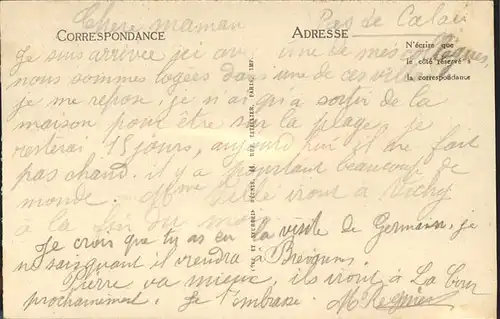 Chere maman
Pas de Calais
CORRESPONDANCE
ADRESSE
N'écrire que
le côté réservé à
la correspondance
Je suis arrivée ici avec une de mes collègues,
nous sommes logées dans une de ces villas
je me repose, je n'ai qu'a sortir de la
maison pour être sur la plage, je
resterai 15 jours, aujourd'hui il ne fait
pas chaud. il y a pourtant beaucoup de
monde. Mme iront à Vichy
à la fin du mois
Je crois que tu as eu la visite de Germaine, je
ne sais quand il viendra à
Pierre va mieux, ils iront à La Cour
prochainement. Je t'embrasse. M Regnier